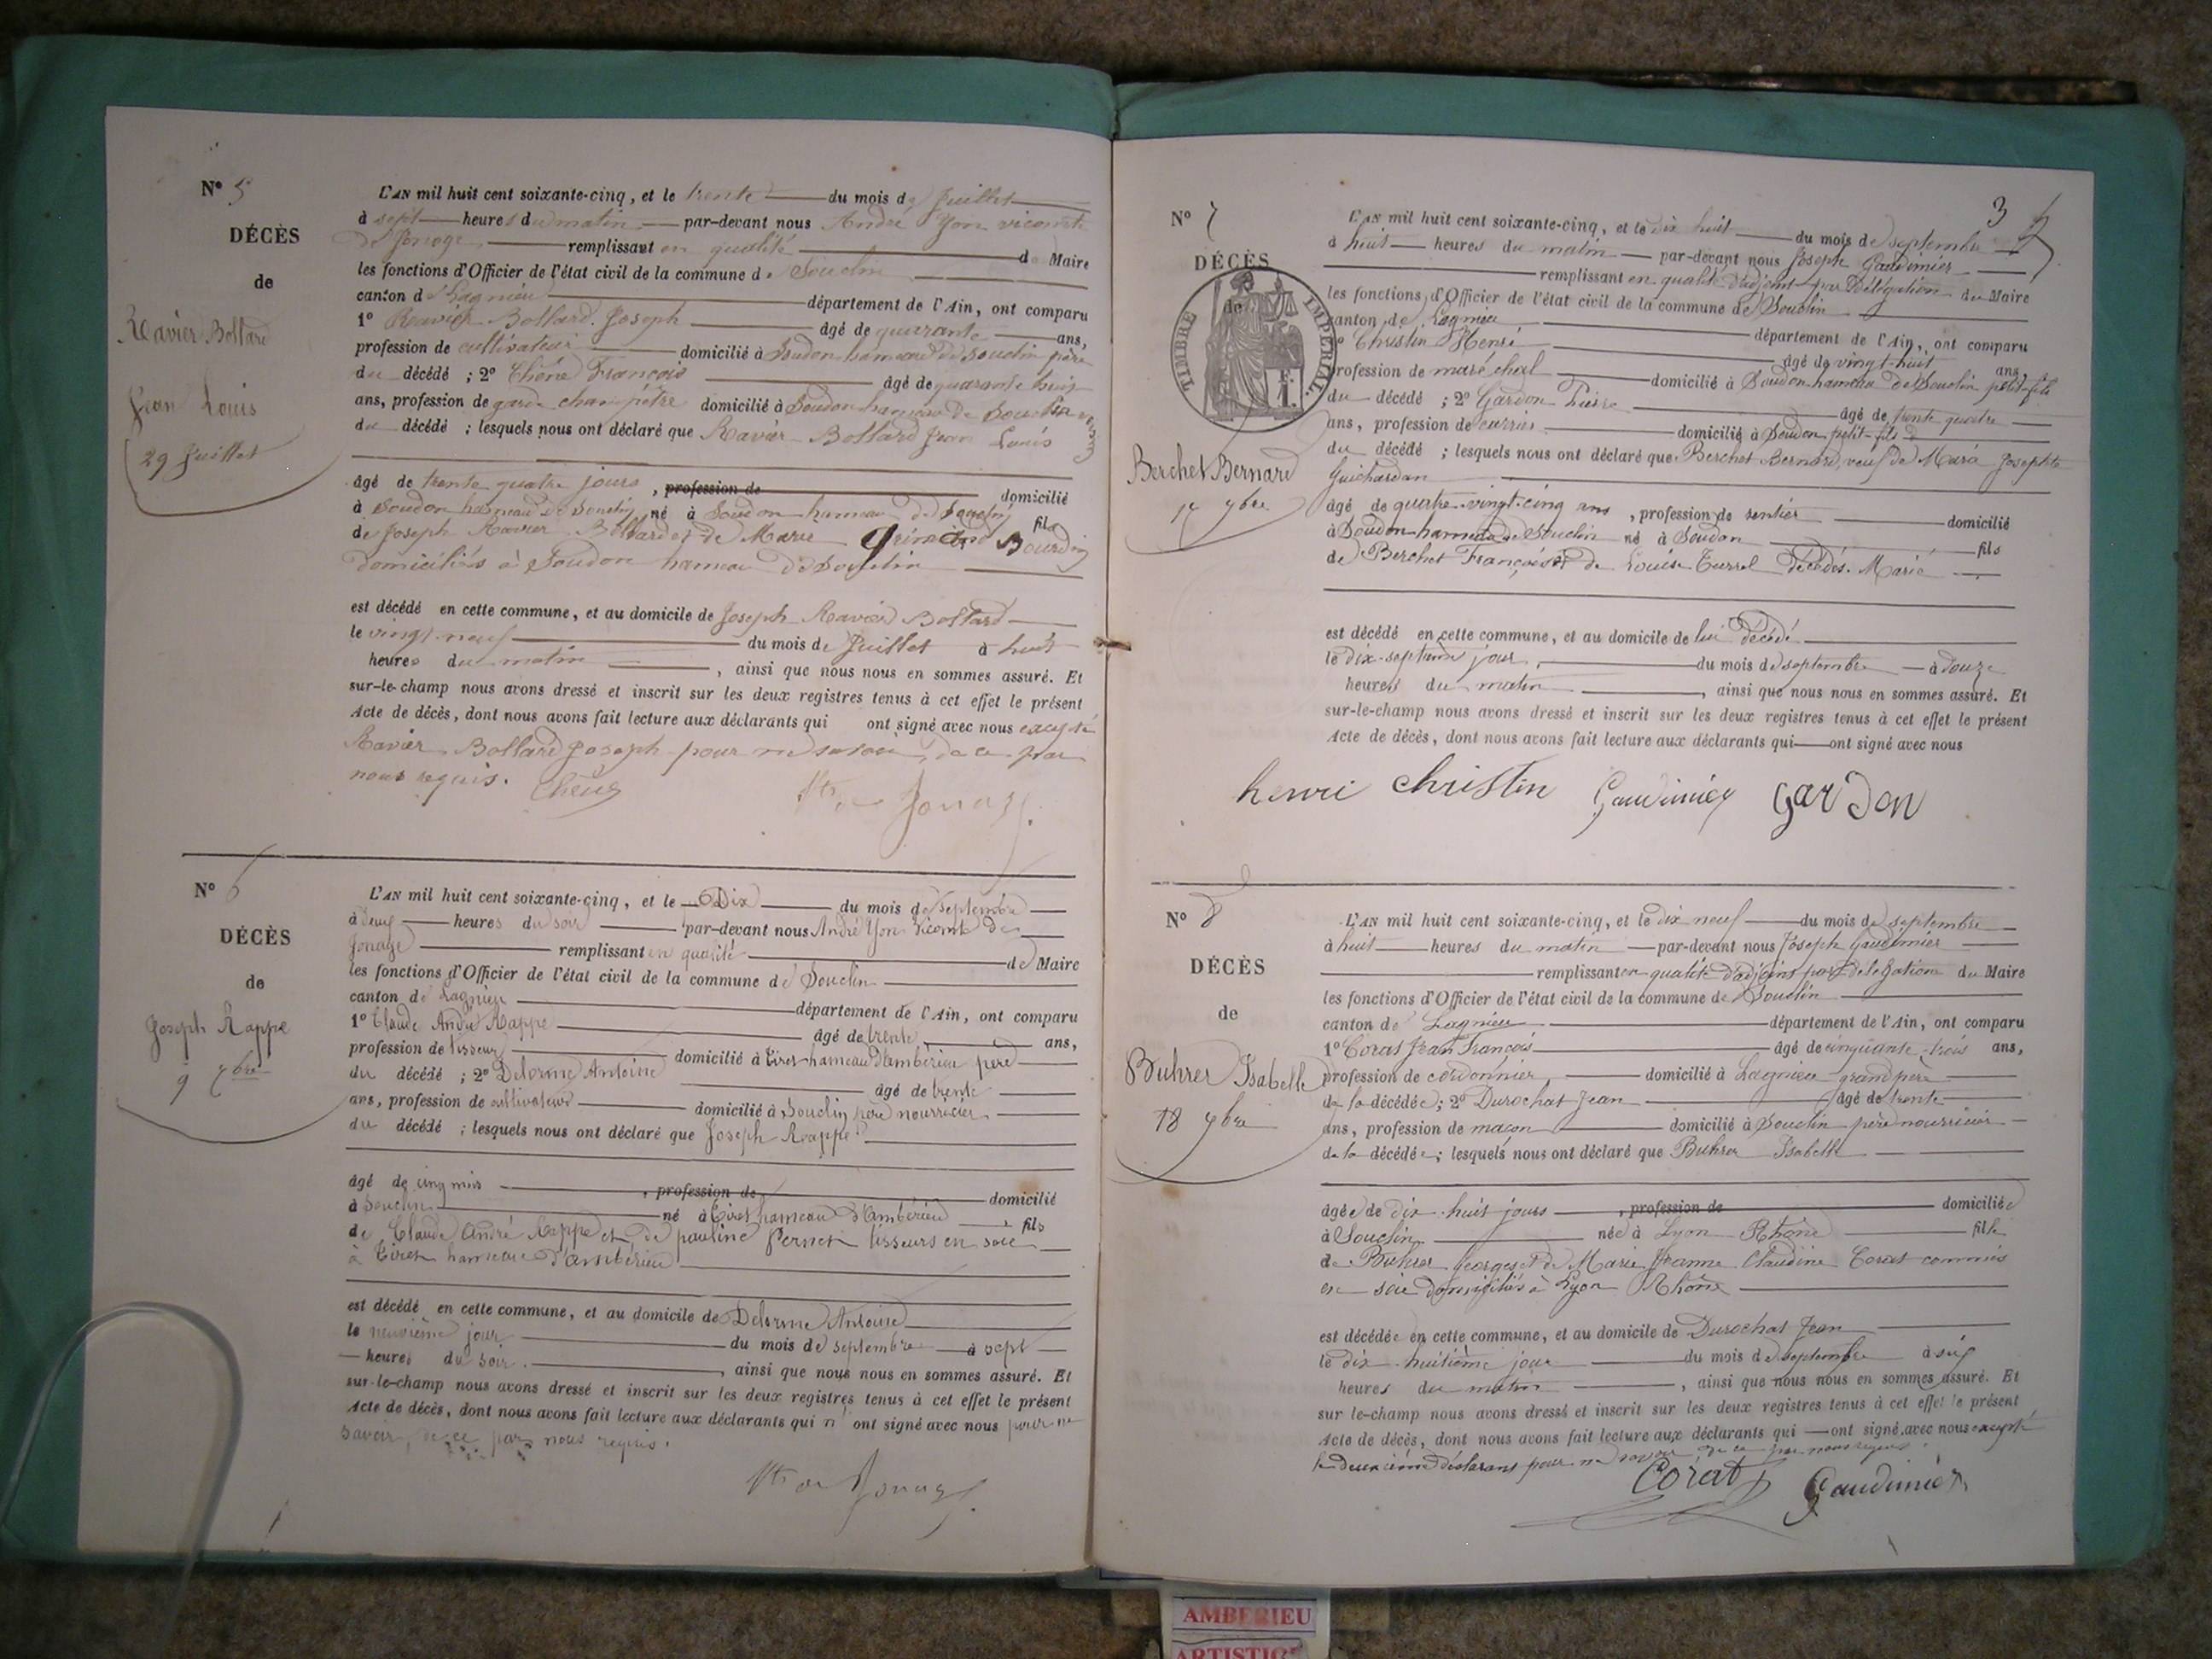 N° 5
DÉCÈS
de
Ravier Bollard
Jean Louis
29 Juillet
L'AN mil huit cent soixante-cinq, et le trente du mois de Juillet
à sept heures du matin par-devant nous André Yon vicomte
de Jonage remplissant en qualité de Maire
les fonctions d'Officier de l'état civil de la commune de Souclin
canton de Lagnieu département de l'Ain, ont comparu
1° Ravier Bollard Joseph âgé de quarante ans,
profession de cultivateur domicilié à Soudon hameau de Souclin père
du décédé ; 2° Chêne François âgé de quarante huit
ans, profession de garde champêtre domicilié à Soudon hameau de Souclin
du décédé ; lesquels nous ont déclaré que Ravier Bollard Jean Louis
âgé de trente quatre jours, profession de domicilié
à Soudon hameau de Souclin né à Soudon hameau de Souclin fils
de Joseph Ravier Bollard et de Marie Bourdin
domiciliés à Soudon hameau de Souclin
est décédé en cette commune, et au domicile de Joseph Ravier Bollard
le vingt-neuf du mois de Juillet à huit
heures du matin , ainsi que nous nous en sommes assuré. Et
sur-le-champ nous avons dressé et inscrit sur les deux registres tenus à cet effet le présent
Acte de décès, dont nous avons fait lecture aux déclarants qui ont signé avec nous excepté
Ravier Bollard Joseph pour ne savoir, de ce par
nous requis. Chêne Vte de Jonage
N° 6
DÉCÈS
de
Joseph Rappe
9 7bre
L'AN mil huit cent soixante-cinq, et le Dix du mois de Septembre
à neuf heures du soir par-devant nous André Yon Vicomte de
Jonage remplissant en qualité de Maire
les fonctions d'Officier de l'état civil de la commune de Souclin
canton de Lagnieu département de l'Ain, ont comparu
1° Claude André Rappe âgé de trente ans,
profession de tisseur domicilié à Tiret hameau d'Ambérieu père
du décédé ; 2° Delorme Antoine âgé de trente
ans, profession de cultivateur domicilié à Souclin père nourricier
du décédé ; lesquels nous ont déclaré que Joseph Rappe
âgé de cinq mois , profession de domicilié
à Souclin né à Tiret hameau d'Ambérieu fils
de Claude André Rappe et de pauline Pernet tisseurs en soie
à Tiret hameau d'Ambérieu
est décédé en cette commune, et au domicile de Delorme Antoine
le neuvième jour du mois de septembre à sept
heures du soir , ainsi que nous nous en sommes assuré. Et
sur-le-champ nous avons dressé et inscrit sur les deux registres tenus à cet effet le présent
Acte de décès, dont nous avons fait lecture aux déclarants qui n'ont signé avec nous pour ne
savoir, de ce par nous requis.
Vte de Jonage
3
N° 7
DÉCÈS
de
TIMBRE IMPÉRIAL
1 F.
Berchet Bernard
17 7bre
L'AN mil huit cent soixante-cinq, et le dix huit du mois de septembre
à huit heures du matin par-devant nous Joseph Gaudimier
remplissant en qualité d'adjoint par Délégation du Maire
les fonctions d'Officier de l'état civil de la commune de Souclin
canton de Lagnieu département de l'Ain, ont comparu
1° Christin Henri âgé de vingt-huit ans,
profession de maréchal domicilié à Soudon hameau de Souclin petit-fils
du décédé ; 2° Gardon Pierre âgé de trente quatre
ans, profession de domicilié à Soudon petit-fils
du décédé ; lesquels nous ont déclaré que Berchet Bernard, veuf de Marie Josephte
Guichardan
âgé de quatre-vingt-cinq ans , profession de rentier domicilié
à Soudon hameau de Souclin né à Soudon fils
de Berchet François et de Louise Turrel décédés. Marié
est décédé en cette commune, et au domicile de lui décédé
le dix-septième jour du mois de septembre à douze
heures du matin , ainsi que nous nous en sommes assuré. Et
sur-le-champ nous avons dressé et inscrit sur les deux registres tenus à cet effet le présent
Acte de décès, dont nous avons fait lecture aux déclarants qui ont signé avec nous
henri christin Gaudimier gardon
N° 8
DÉCÈS
de
Buhrer Isabelle
18 7bre
L'AN mil huit cent soixante-cinq, et le dix neuf du mois de septembre
à huit heures du matin par-devant nous Joseph Gaudimier
remplissant en qualité d'adjoint par delegation du Maire
les fonctions d'Officier de l'état civil de la commune de Souclin
canton de Lagnieu département de l'Ain, ont comparu
1° Corat Jean François âgé de cinquante-trois ans,
profession de cordonnier domicilié à Lagnieu grand père
de la décédée ; 2° Durochat Jean âgé de trente
ans, profession de maçon domicilié à Souclin père nourricier
de la décédée ; lesquels nous ont déclaré que Buhrer Isabelle
âgée de dix-huit jours , profession de domiciliée
à Souclin née à Lyon Rhône fille
de Buhrer Georges et de Marie Jeanne Claudine Corat commis
en soie domiciliés à Lyon Rhône
est décédée en cette commune, et au domicile de Durochat Jean
le dix-huitième jour du mois de septembre à six
heures du matin , ainsi que nous nous en sommes assuré. Et
sur le-champ nous avons dressé et inscrit sur les deux registres tenus à cet effet le présent
Acte de décès, dont nous avons fait lecture aux déclarants qui ont signé avec nous excepté
le deuxième déclarant pour ne savoir de ce par nous requis.
Corat Gaudimier
AMBERIEU
ARTISTIC